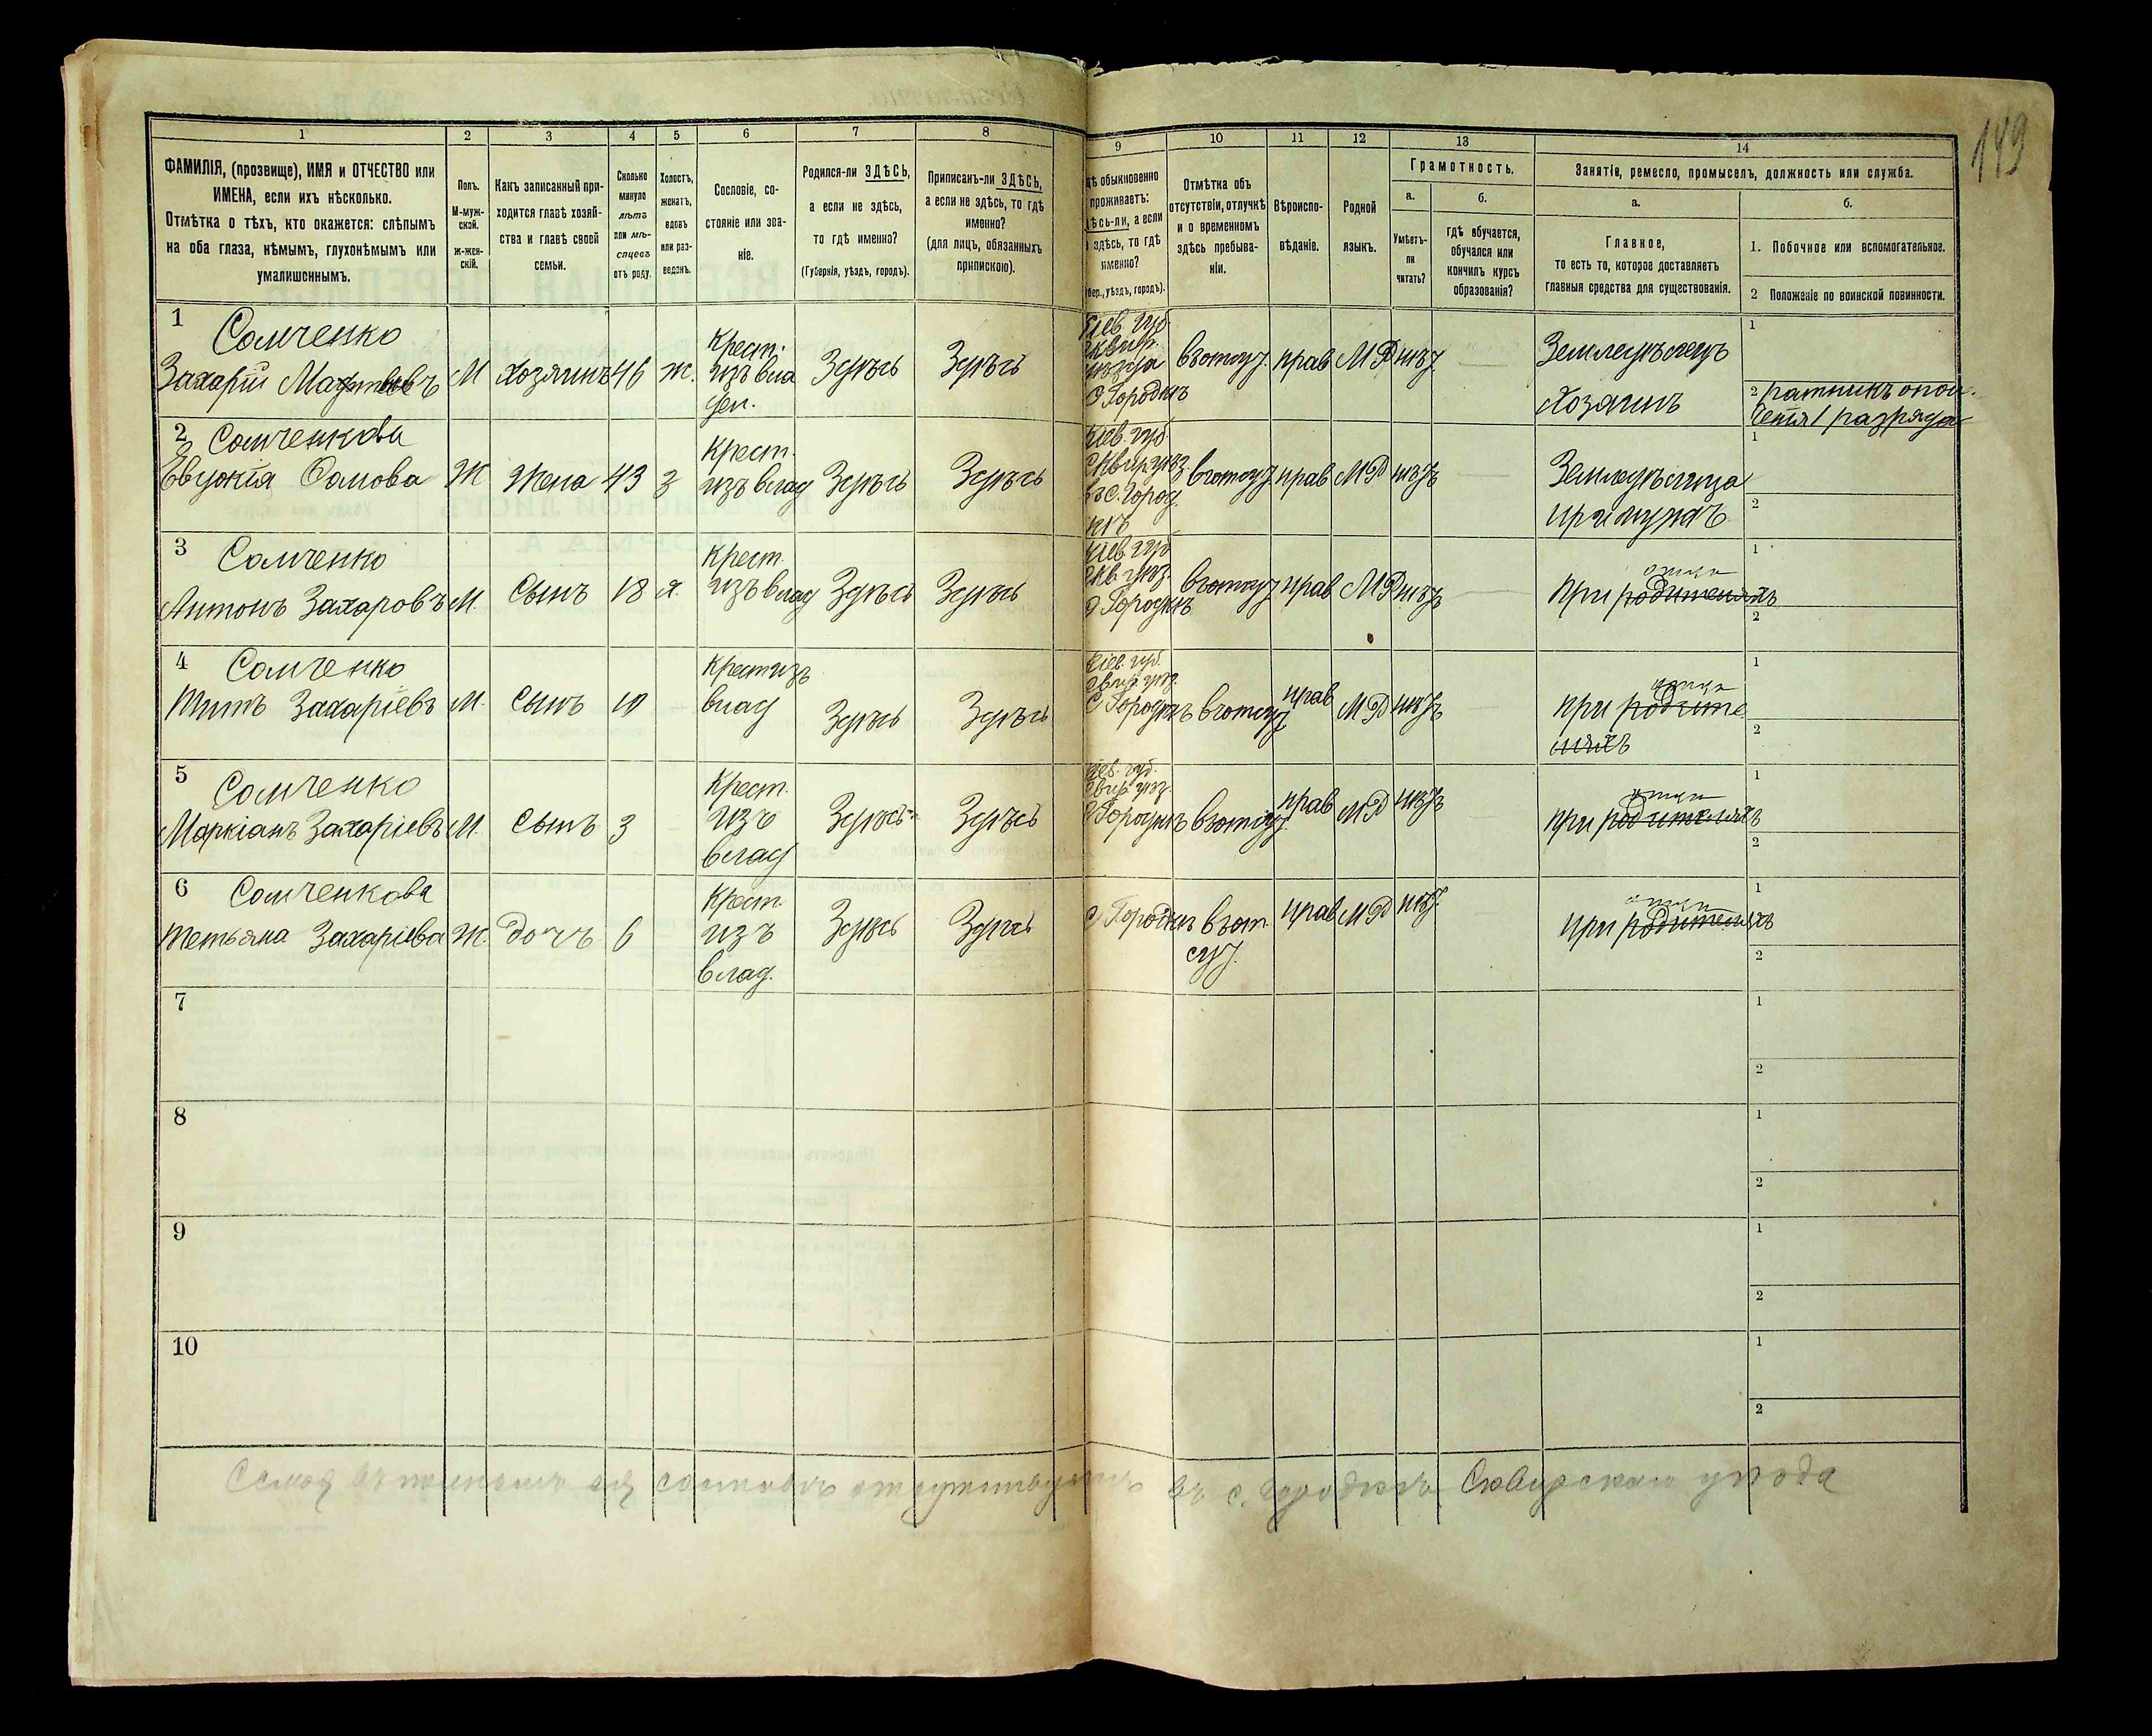 149
1 2 3 4 5 6 7 8 9 10 11 12 13 14
ФАМИЛІЯ, (прозвище), ИМЯ и ОТЧЕСТВО или
ИМЕНА, если ихъ нѣсколько.
Отмѣтка о тѣхъ, кто окажется: слѣпымъ
на оба глаза, нѣмымъ, глухонѣмымъ или
умалишеннымъ.
Полъ.
М-муж-
ской.
ж-жен-
скій.
Какъ записанный при-
ходится главѣ хозяй-
ства и главѣ своей
семьи.
Сколько
минуло
лѣтъ
или мѣ-
сяцевъ
отъ роду.
Холостъ,
женатъ,
вдовъ
или раз-
веденъ.
Сословіе, со-
стояніе или зва-
ніе.
Родился-ли ЗДѢСЬ,
а если не здѣсь,
то гдѣ именно?
(Губернія, уѣздъ, городъ).
Приписанъ-ли ЗДѢСЬ,
а если не здѣсь, то гдѣ
именно?
(для лицъ, обязанныхъ
припискою).
обыкновенно
проживаетъ:
а если
здѣсь, то гдѣ
именно?
уѣздъ, городъ).
Отмѣтка объ
отсутствіи, отлучкѣ
и о временномъ
здѣсь пребыва-
ніи.
Вѣроиспо-
вѣданіе.
Родной
языкъ.
Грамотность.
а.
Умѣетъ-
ли
читать?
б.
гдѣ обучается,
обучался или
кончилъ курсъ
образованія?
Занятіе, ремесло, промыселъ, должность или служба.
а.
Главное,
то есть то, которое доставляетъ
главныя средства для существованія.
б.
1. Побочное или вспомогательное.
2 Положеніе по воинской повинности.
1 Сомченко
Захарій М Хозяинъ 46 ж. Крест. изъ вла дѣл. Здѣсь Здѣсь
Кіев. губ. уѣзда с Городкѣ
в отсут. прав М Р нѣтъ
Земледѣлецъ
Хозяинъ
1
2 ратникъ опол.
ченія 1 разряда
2 Сомченкова
Евдокія Ж Жена 43 з Крест. изъ влад Здѣсь Здѣсь
Кіев. губ. Сквир уѣз. въ с. Город кѣ
в отсут прав МР нѣтъ
Земледѣлица
при мужѣ
1
2
3 Сомченко
Антонъ Захаровъ М. Сынъ 18 х. Крест изъ влад Здѣсь Здѣсь
Кіев губ Скв. уѣз. с Городкѣ
в отсут прав МР нѣтъ
отцѣ
При родителяхъ
1
2
4 Сомченко
Титъ Захаріевъ М. Сынъ 10 Крест изъ влад Здѣсь Здѣсь
Кіев. губ. уѣз. с Городкѣ в отсут прав МР нѣтъ
отцѣ
при родите
ляхъ
1
2
5 Сомченко
Маркіанъ Захаріевъ М. Сынъ 3 Крест. изъ влад Здѣсь Здѣсь
Кіев. губ. уѣз. с Городкѣ в отсут прав МР нѣтъ
отцѣ
при родителяхъ
1
2
6 Сомченкова
Тетьяна Захаріева Ж. дочь 6 Крест изъ влад. Здѣсь Здѣсь
с Городкѣ в от сут. прав МР нѣт.
отцѣ
при родителяхъ
1
2
7
1
2
8
1
2
9
1
2
10
1
2
Семья въ полномъ составѣ въ с. Городкѣ Сквирскаго уѣзда